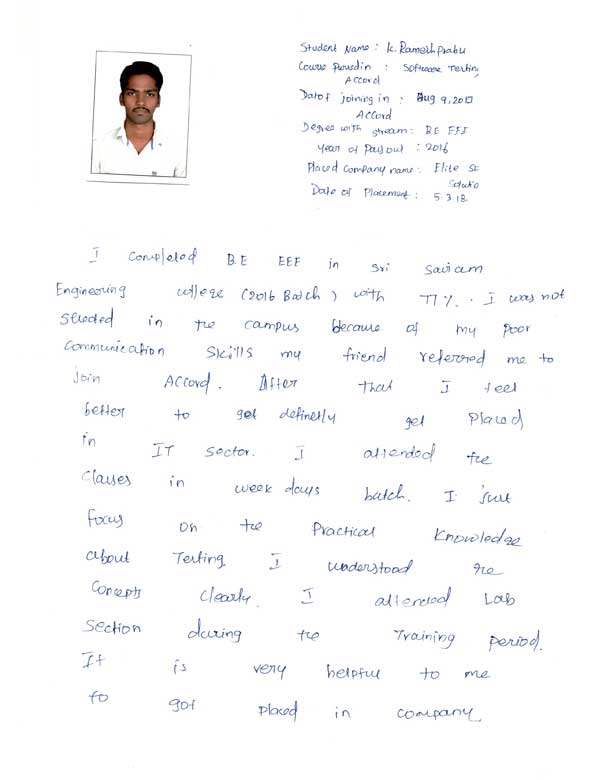 Student Name : K. Rameshprabu
Course Joined in : Software Testing
Accord
Date of joining in : Aug 9, 2017
Accord
Degree with stream : BE EEE
Year of Passout : 2016
Placed Company name : Elite SE
Solutio
Date of Placement : 5.3.18.
I Completed B.E EEE in Sri Sairam
Engineering college (2016 Batch) with 77%. I was not
Steeted in the campus because of my poor
Communication Skills my friend referred me to
join Accord. After that I feel
better to get definetly get Placed
in IT Sector. I attended the
Classes in week days batch. I just
focus on the Practical Knowledge
about Testing. I understood the
Concepts Clearly. I attended Lab
Section during the Training period.
It is very helpful to me
to got Placed in company.